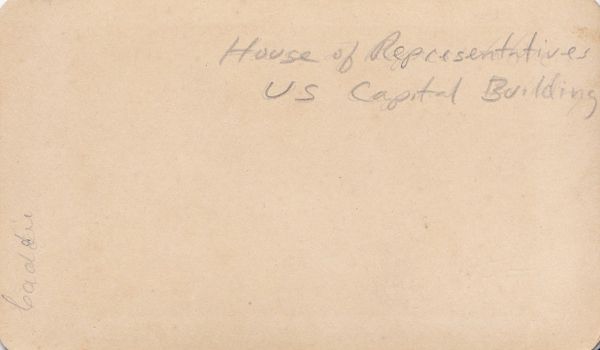 House of Representatives
US Capital Building